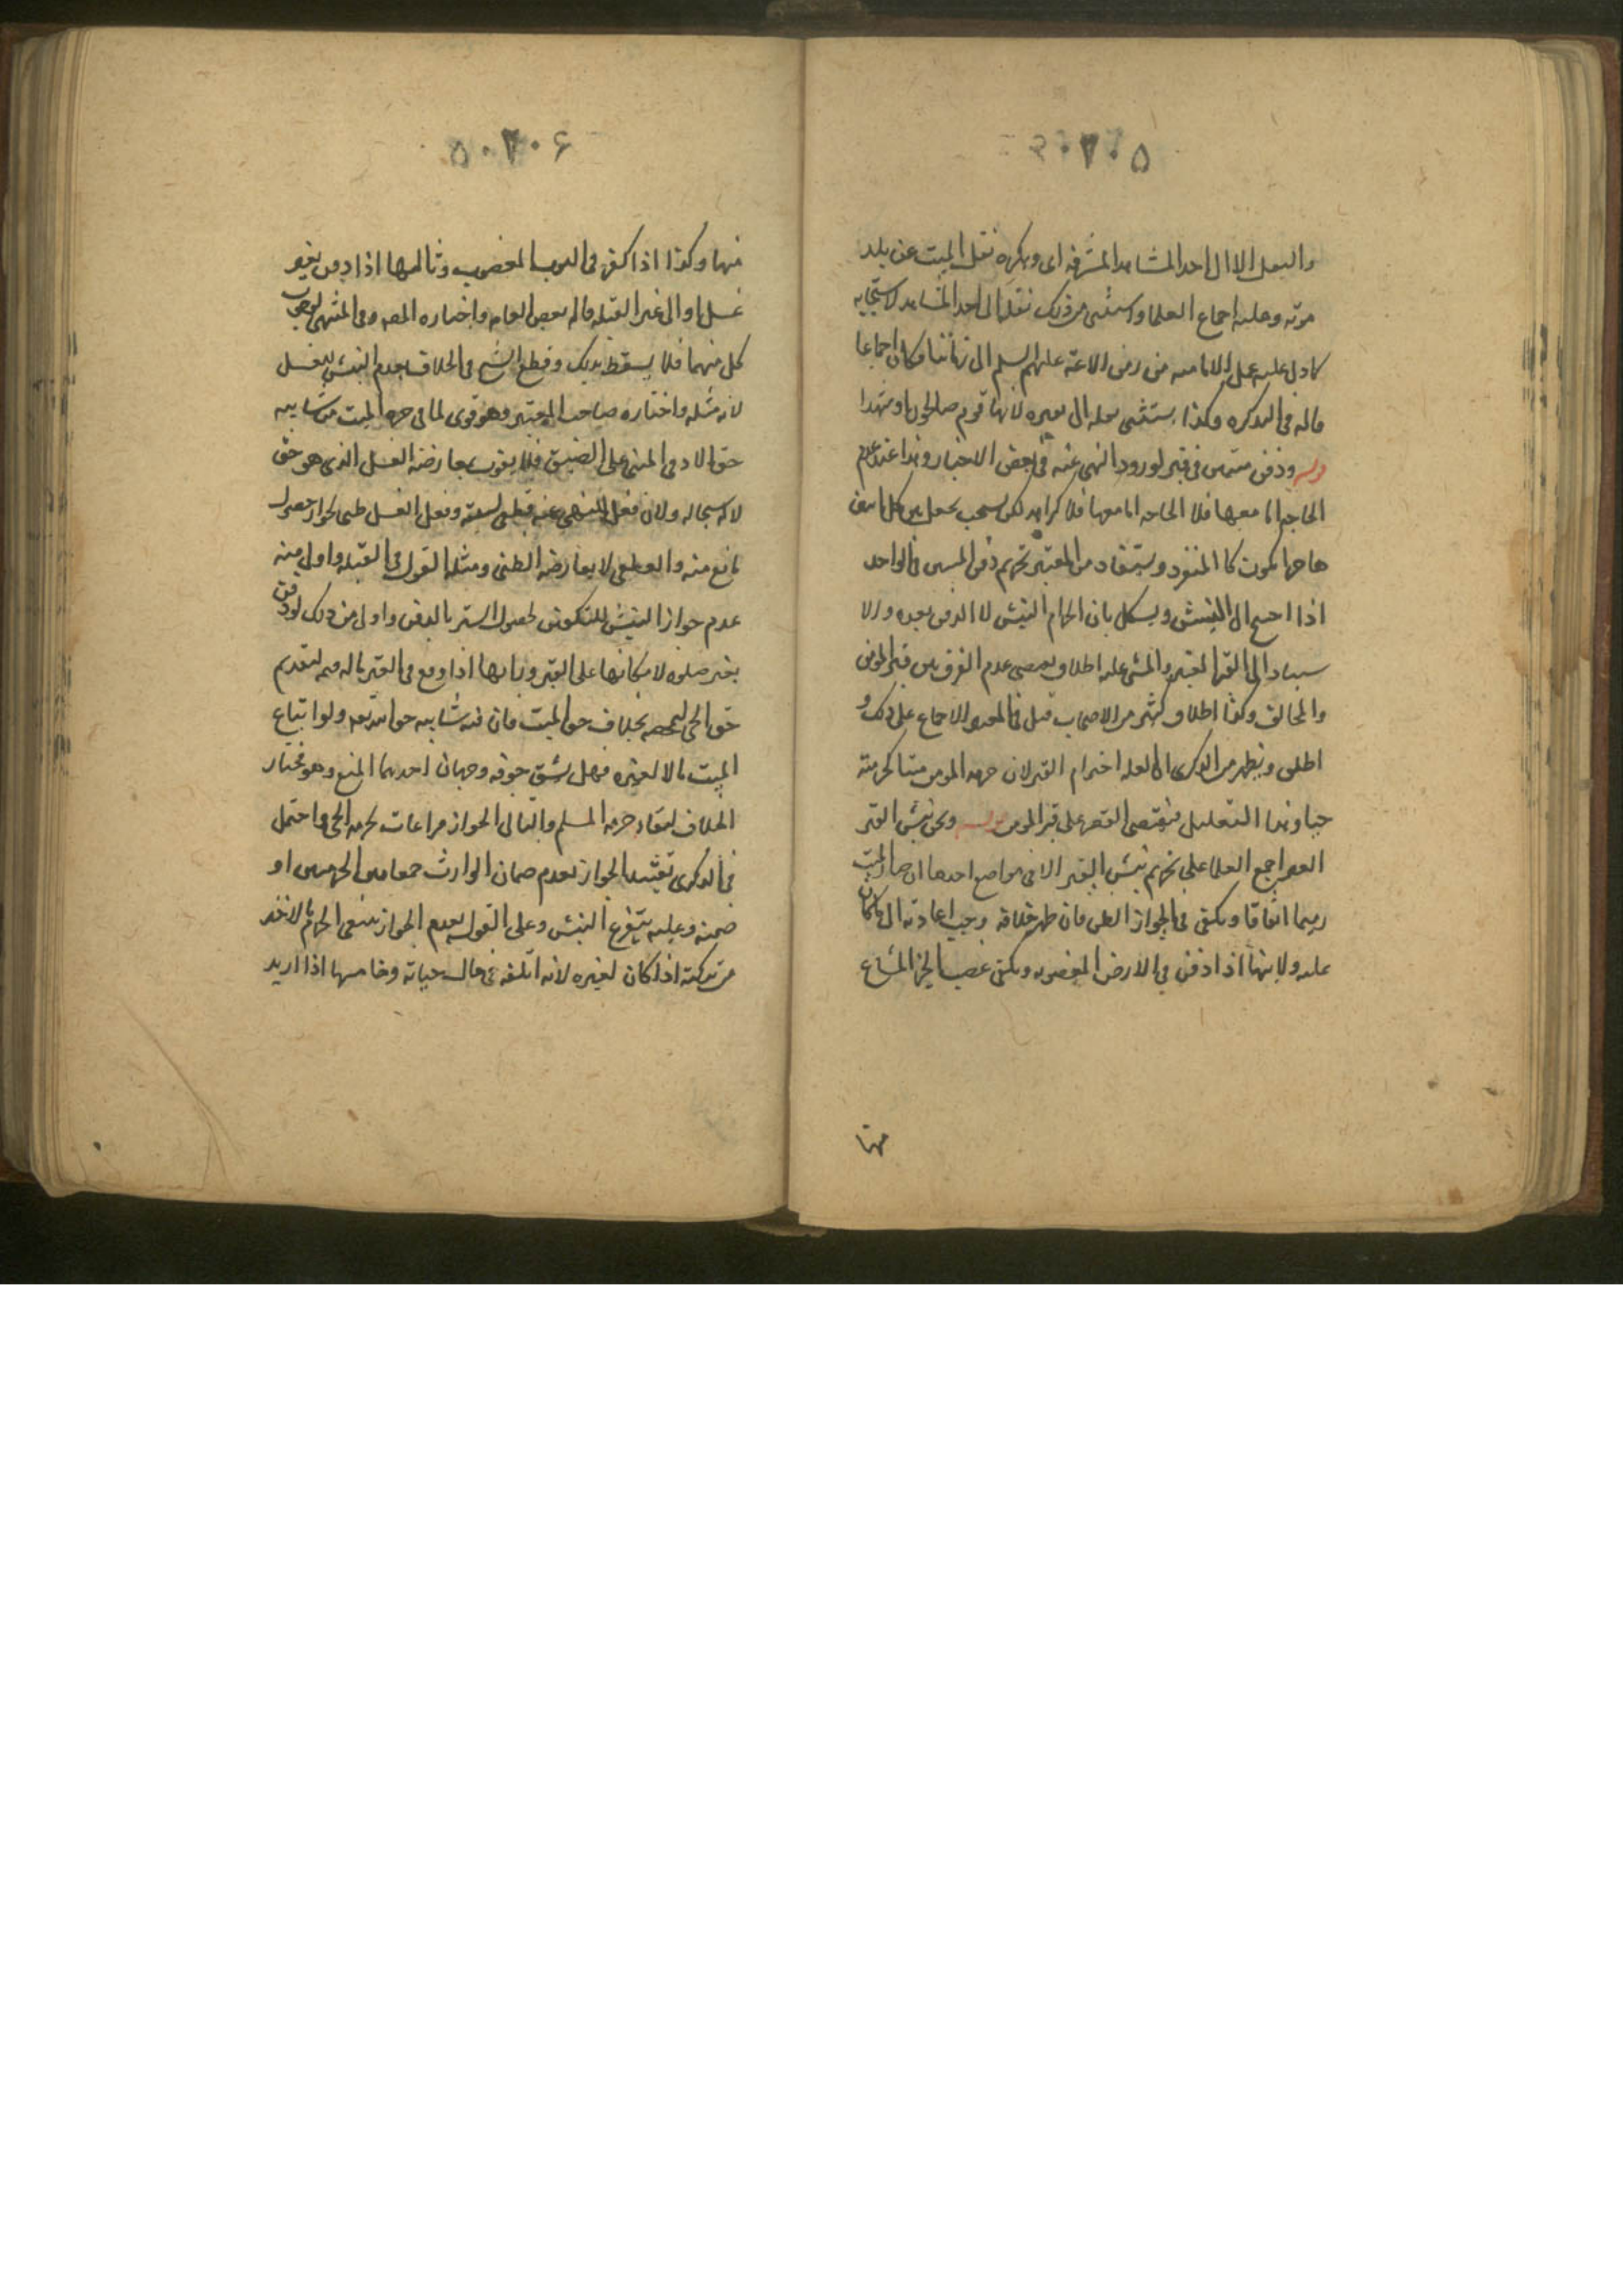 ٢٠٥
والنقل الا الى احد المشاهد المشرفة اى ويكره نقل الميت عن بلد
موته وعليه اجماع العلما واستثنى من ذلك نقله الى احد المشاهد لاستحبابه
كما دل عليه عمل الاماميه من زمن الائمة عليهم السلم الى زماننا فكان اجماعا
قاله فى التذكره وكذا يستثنى نقله الى مقبره لانها قوم صالحون او شهدا
قوله ودفن ميتين فى قبر لورود النهى عنه فى بعض الاخبار وهذا عند عدم
الحاجه اما معها فلا كراهه لكن يستحب جعل بين كل اثنين
حاجزا ليكون كالمنفرد ويستفاد من المعتبر تحريم دفن الميتين فى الواحد
اذا احتيج الى النبش ويشكل بان الحرام النبش لا الدفن بعده والا
الى القبر المقبر والمشى عليه اطلاق يقتضى عدم الفرق بين قبر المؤمن
والمخالف وكذا اطلاق كثير من الاصحاب قيل فى الاجماع على ذلك و
اطلق ويظهر من الذكرى ان العله احترام القبر لان حرمه المومن ميتا كحرمته
حيا وهذا التعليل يقتضى القصر على قبر المومن قوله ونحو نبش القبر
اجمع العلما على تحريم نبش القبر الا فى مواضع احدها اذا صار الميت
رميما اتفاقا ويكفى فى الجواز الظن فان ظهر خلافه وجب اعادته الى ما كان
عليه وثانيها اذا دفن فى الارض المغصوبه ويكفى غصب الجزء المشاع
منها
٢٠٦
منها وكذا اذا كفن فى الثوب المغصوب وثالثها اذا دفن بغير
غسل او الى غير القبله قاله بعض العامه واختاره المصه وفى المنتهى لوجوب
كل منهما فلا يسقط بذلك وقطع الشيخ فى الخلاف بعدم النبش للغسل
لانه مثله واختاره صاحب المعتبر وهو قوى لما فى حرمه الميت من شايبه
حق الادمى المبنى على الضيق فلا يقوى بمعارضه الغسل الذى هو حق
لله سبحانه ولان فعل المنهى عنه قطعى وفعل الغسل ظنى لجواز حصول
مانع منه والقطعى لا يعارضه الظنى ومثله القول فى القبله واولى منه
عدم جواز النبش للتكفين لحصول الستر بالدفن واولى من ذلك لو دفن
بغير صلوه لامكانها على القبر ورابعها اذا وقع فى القبر ماله قيمه لتقديم
حق الحى بخلاف حق الميت فان فيه شايبه حق الله تعالى ولو ابتلع
الميت مالا لغيره فهل يشق جوفه وجهان احدهما المنع وهو مختار
الخلاف لبقاء حرمه المسلم والثانى الجواز مراعاة لحرمه الحى واحتمل
فى الذكرى تقييد الجواز بعدم ضمان الوارث جمعا بين الحرمتين او
ضمنه وعليه يتفرع النبش وعلى القول بعدم الجواز ينبغى الحرام بالاخذ
من تركته اذا كان لغيره لانه اتلفه فى حال حياته وخامسها اذا اريد